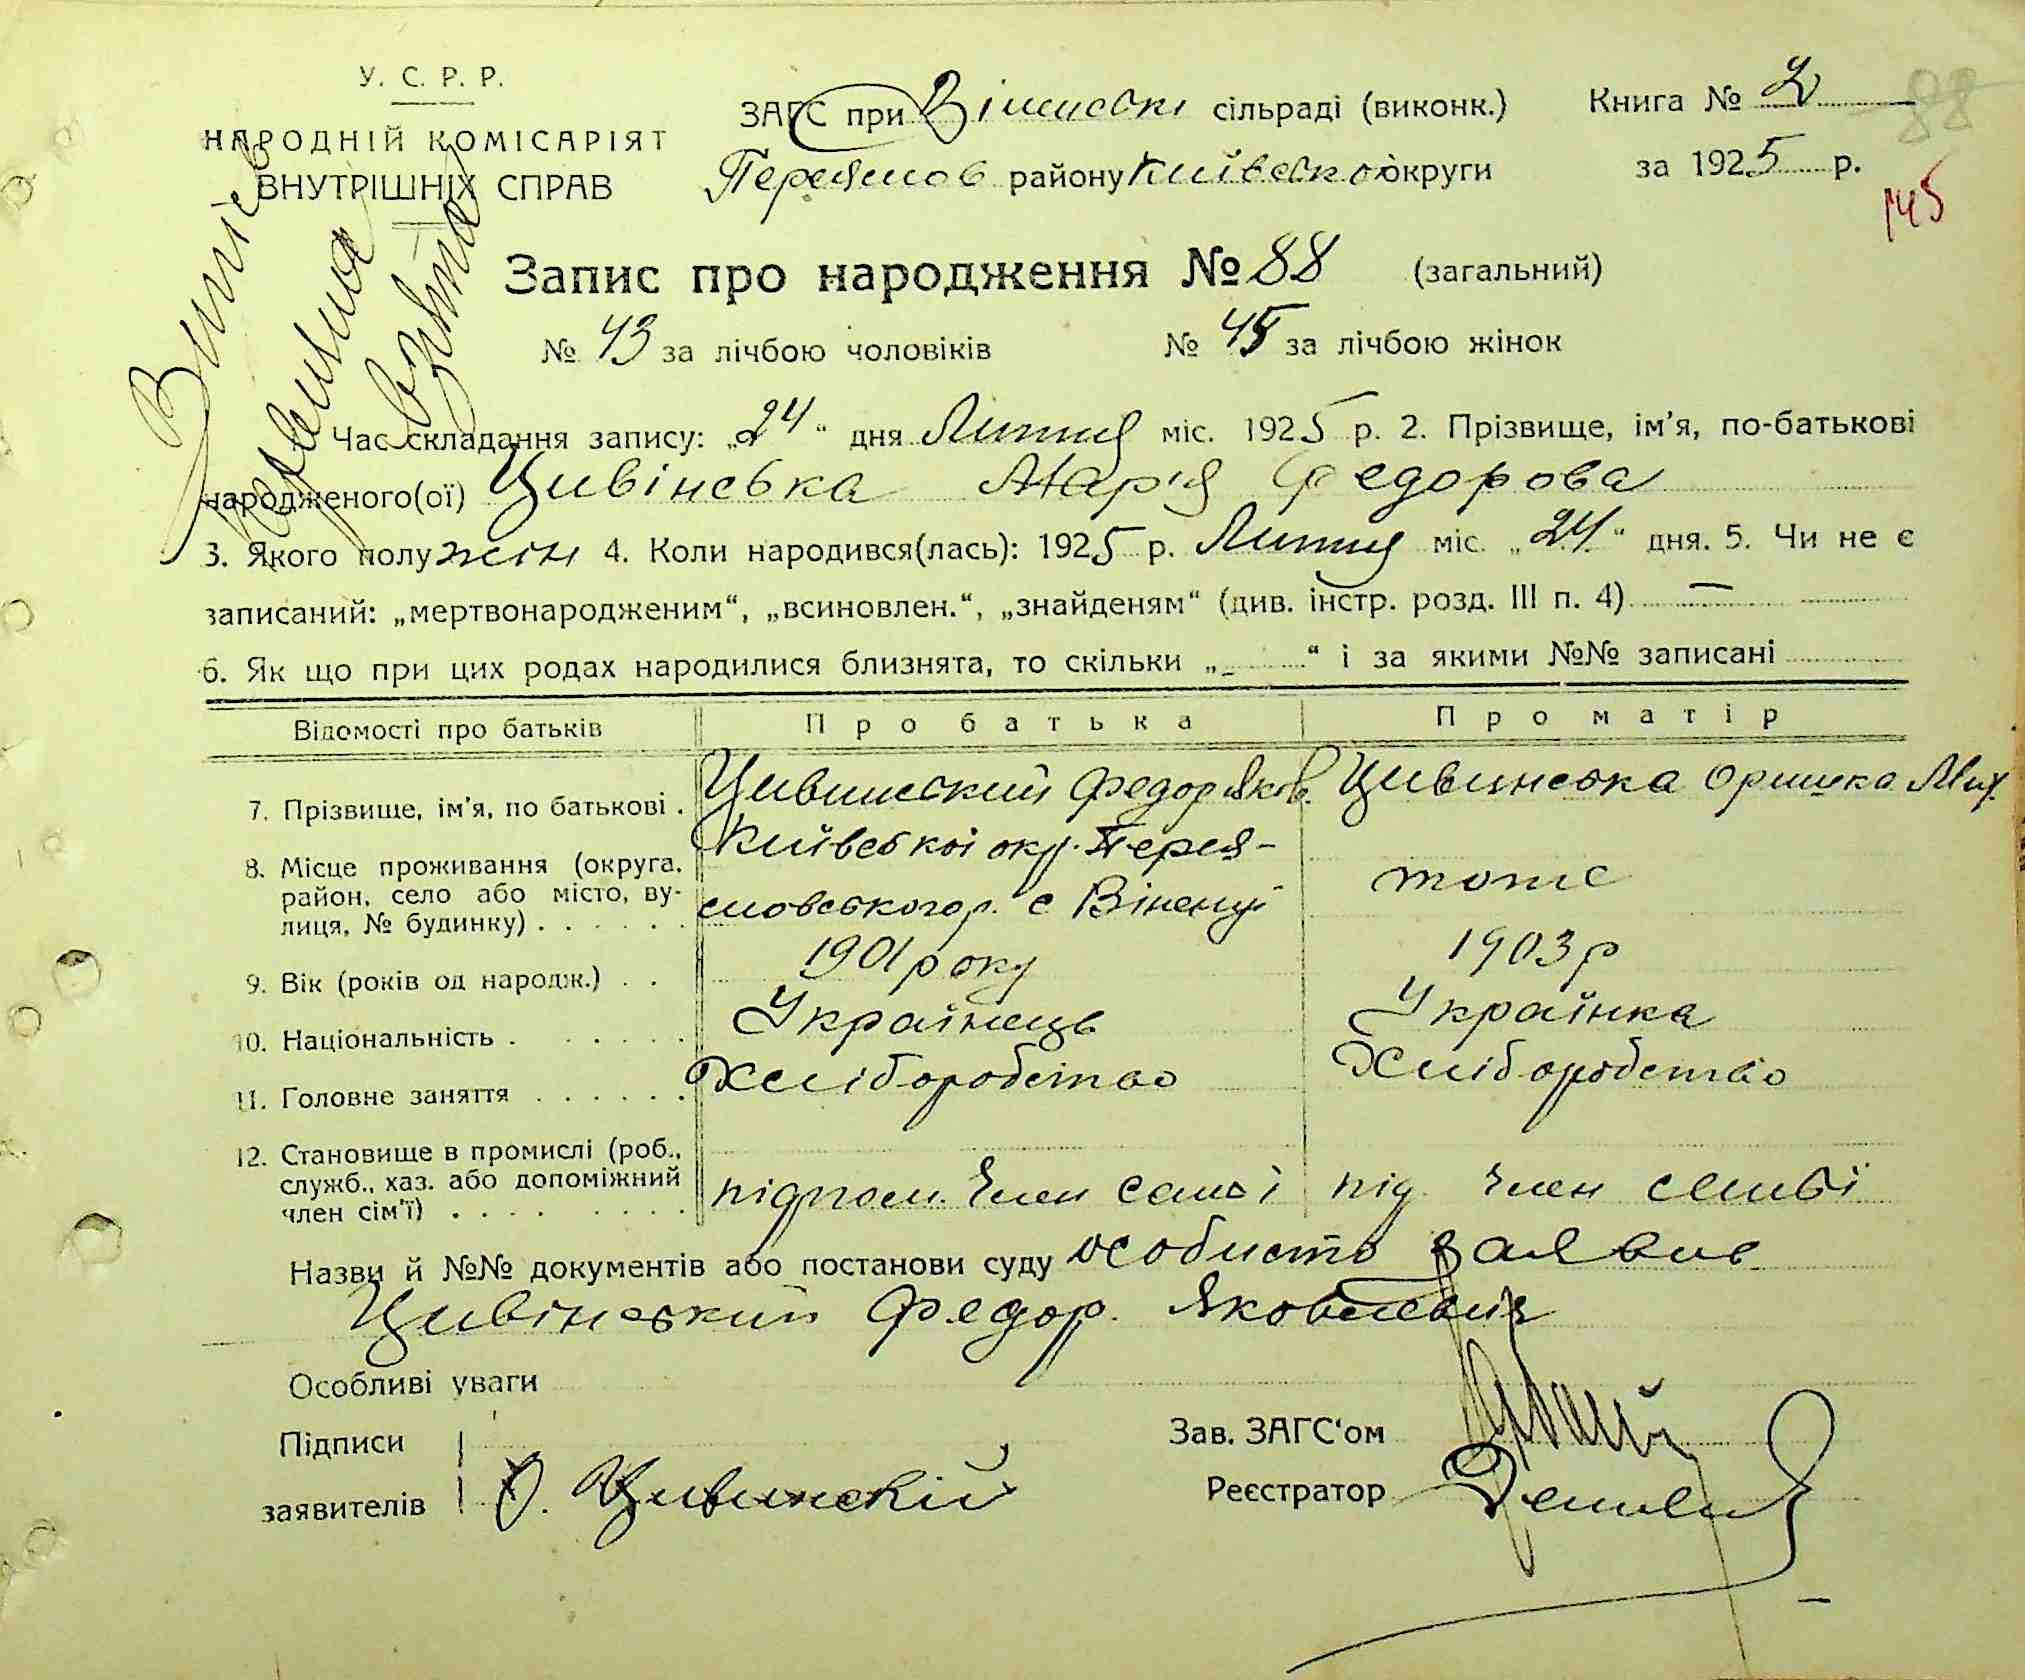 У. С. Р. Р.
НАРОДНІЙ КОМІСАРІЯТ
ВНУТРІШНІХ СПРАВ
ЗАГС при сільраді (виконк.)
Переяслов району Київсько округи
Книга № 2
88
за 1925 р.
145
Запис про народження № 88 (загальний)
№ 43 за лічбою чоловіків № 45 за лічбою жінок
Час складання запису: „24“ дня Липня міс. 1925 р. 2. Прізвище, ім'я, по-батькові
народженого(ої) Цивінська Марія Федорова
3. Якого полу жін 4. Коли народився(лась): 1925 р. Липня міс. „24“ дня. 5. Чи не є
записаний: „мертвонародженим“, „всиновлен.“, „знайденям“ (див. інстр. розд. III п. 4) —
6. Як що при цих родах народилися близнята, то скільки „ “ і за якими №№ записані
Відомості про батьків Про батька Про матір
7. Прізвище, ім'я, по батькові . Цивинский Федор Яков. Цивинська Оришка Мих.
8. Місце проживання (округа, район, село або місто, вулиця, № будинку) . . . . . .
Київської окр. Перея-
словського р. с Віненці
тоже
9. Вік (років од народж.) . . 1901 року 1903 р
10. Національність . . . . . . Українець Українка
11. Головне заняття . . . . . . Хліборобство Хліборобство
12. Становище в промислі (роб.,
служб., хаз. або допоміжний
член сім'ї) . . . . . . . .
підпом. член семьї під член семьї
Назви й №№ документів або постанови суду особисто заявив
Цивінський Федор. Яковлевич
Особливі уваги
Підписи
заявителів Ф. Цивинскій
Зав. ЗАГС'ом
Реєстратор